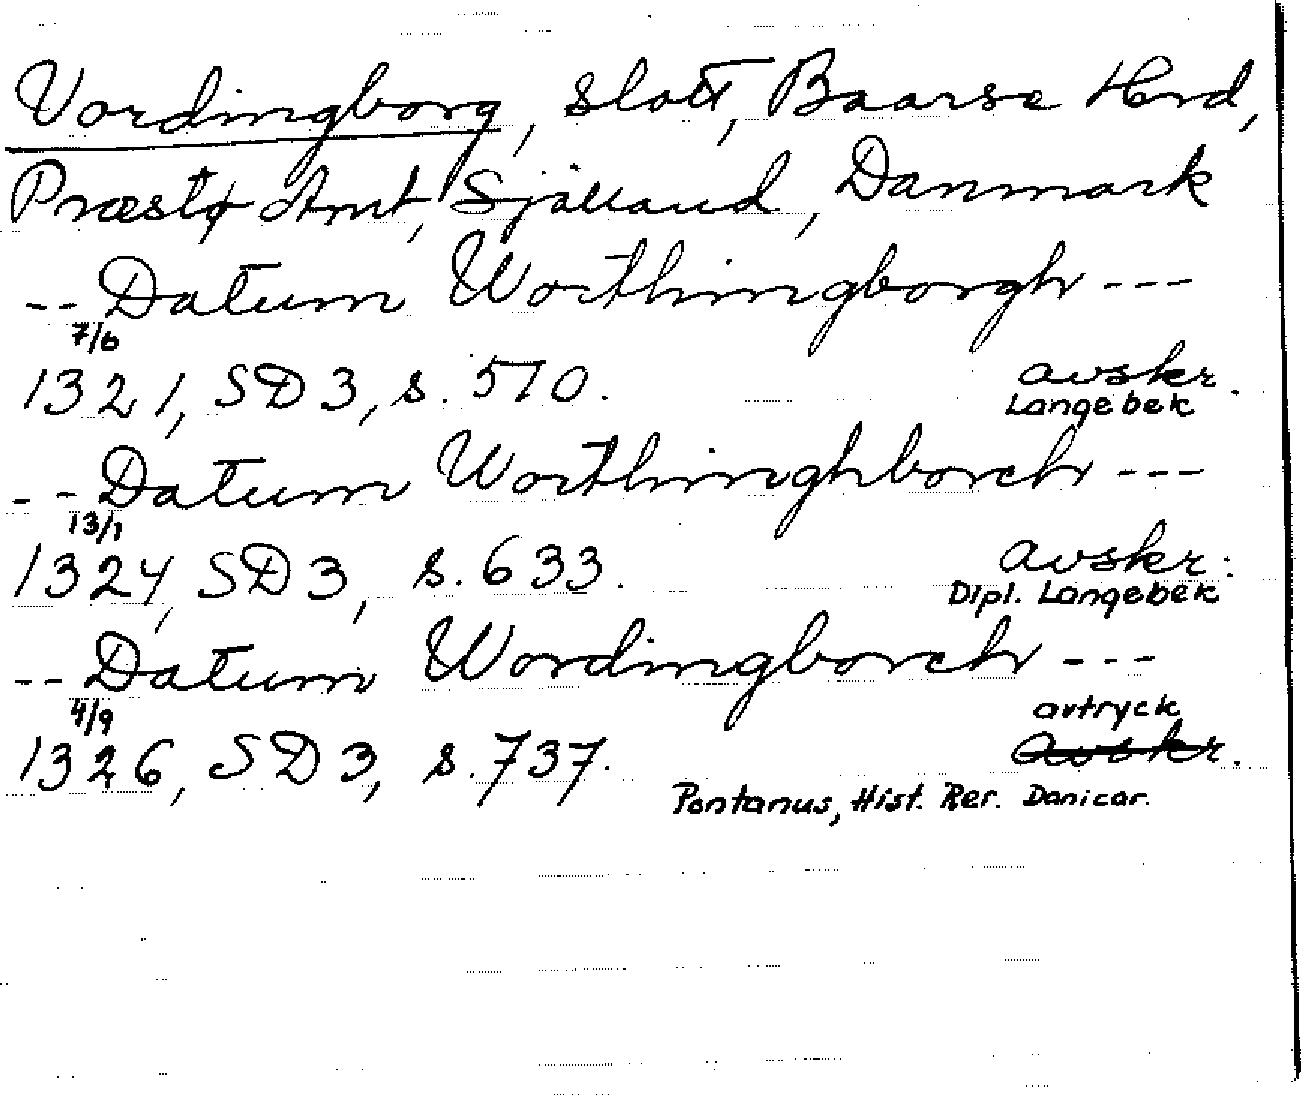 Vordingborg, slott, Baarse Herd,
Præstø Amt, Själland, Danmark
-- Datum Worthingborgh ---
7/6
1321, SD 3, s. 510. avskr.
Langebek
-- Datum Worthinghborch ---
13/1
1324, SD 3, s. 633. avskr.
Dipl. Langebek
-- Datum Wordingborch ---
4/9 avtryck
1326, SD 3, s. 737. avskr.
Pontanus, Hist. Rer. Danicar.